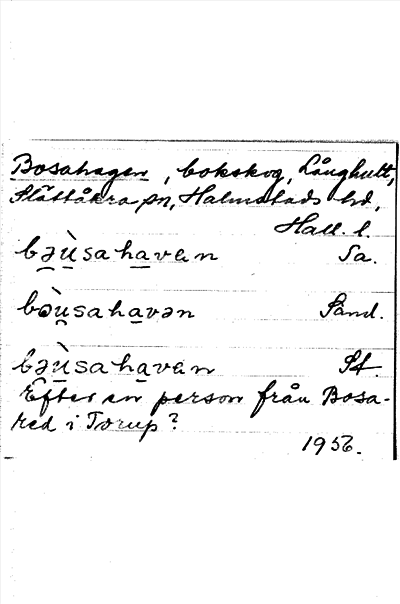 Bosahagen, bokskog, Långhult,
Slättåkra sn, Halmstads hd,
Hall. l.
bə̯ù̯sahava̱n Sa.
bəù̯sahavən Sand.
bə̯ù̯sahava̱n St.
Efter en person från Bosa-
red i Torup?
1956.